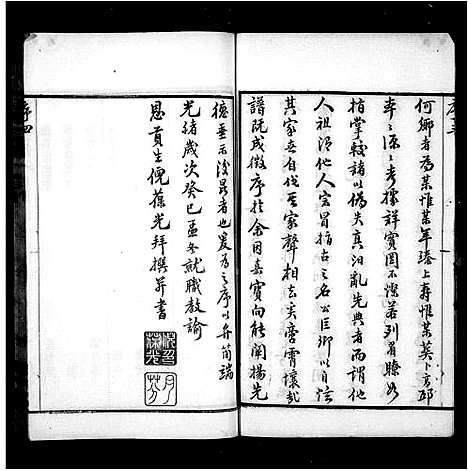 何鄉者為某惟某年璿上壽惟某莫卜方邳
本之源之考據詳實罔不燦若列眉瞭如
指掌較諸以偽失真汨亂先典者而謂他
人祖謂他人宗冒指古之名公巨卿以自炫
其家世自伐其家聲相去奚啻霄壤哉
譜既成徵序於余因嘉實向能闡揚先
德垂示後昆者也爰為之序以弁簡端
光緒歲次癸巳孟冬就職教諭
恩貢生倪葆光拜撰并書
序四